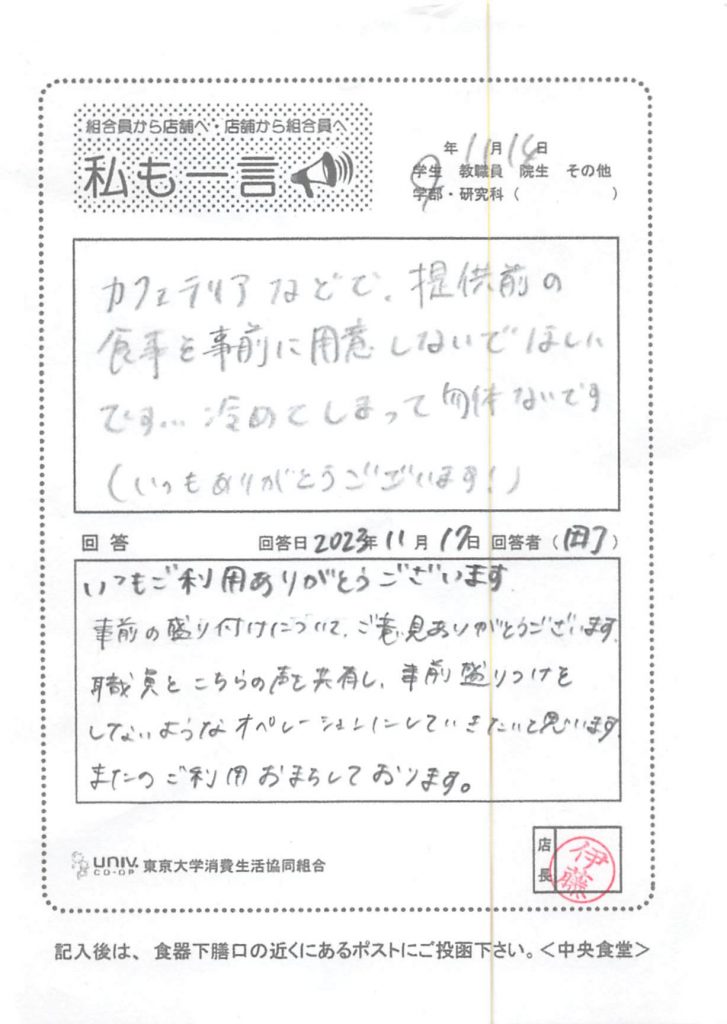 組合員から店舗へ・店舗から組合員へ
私も一言
年11月14日
学生 教職員 院生 その他
学部・研究科（ ）
カフェテリアなどで、提供前の
食事を事前に用意しないでほしい
です… 冷めてしまって勿体ないです
（いつもありがとうございます！）
回答 回答日2023年11月17日 回答者（ ）
いつもご利用ありがとうございます
事前の盛り付けについて、ご意見ありがとうございます。
職員とこちらの声を共有し、事前盛りつけを
しないようなオペレーションにしていきたいと思います。
またのご利用おまちしております。
店長
伊藤
UNIV. CO-OP 東京大学消費生活協同組合
記入後は、食器下膳口の近くにあるポストにご投函下さい。＜中央食堂＞